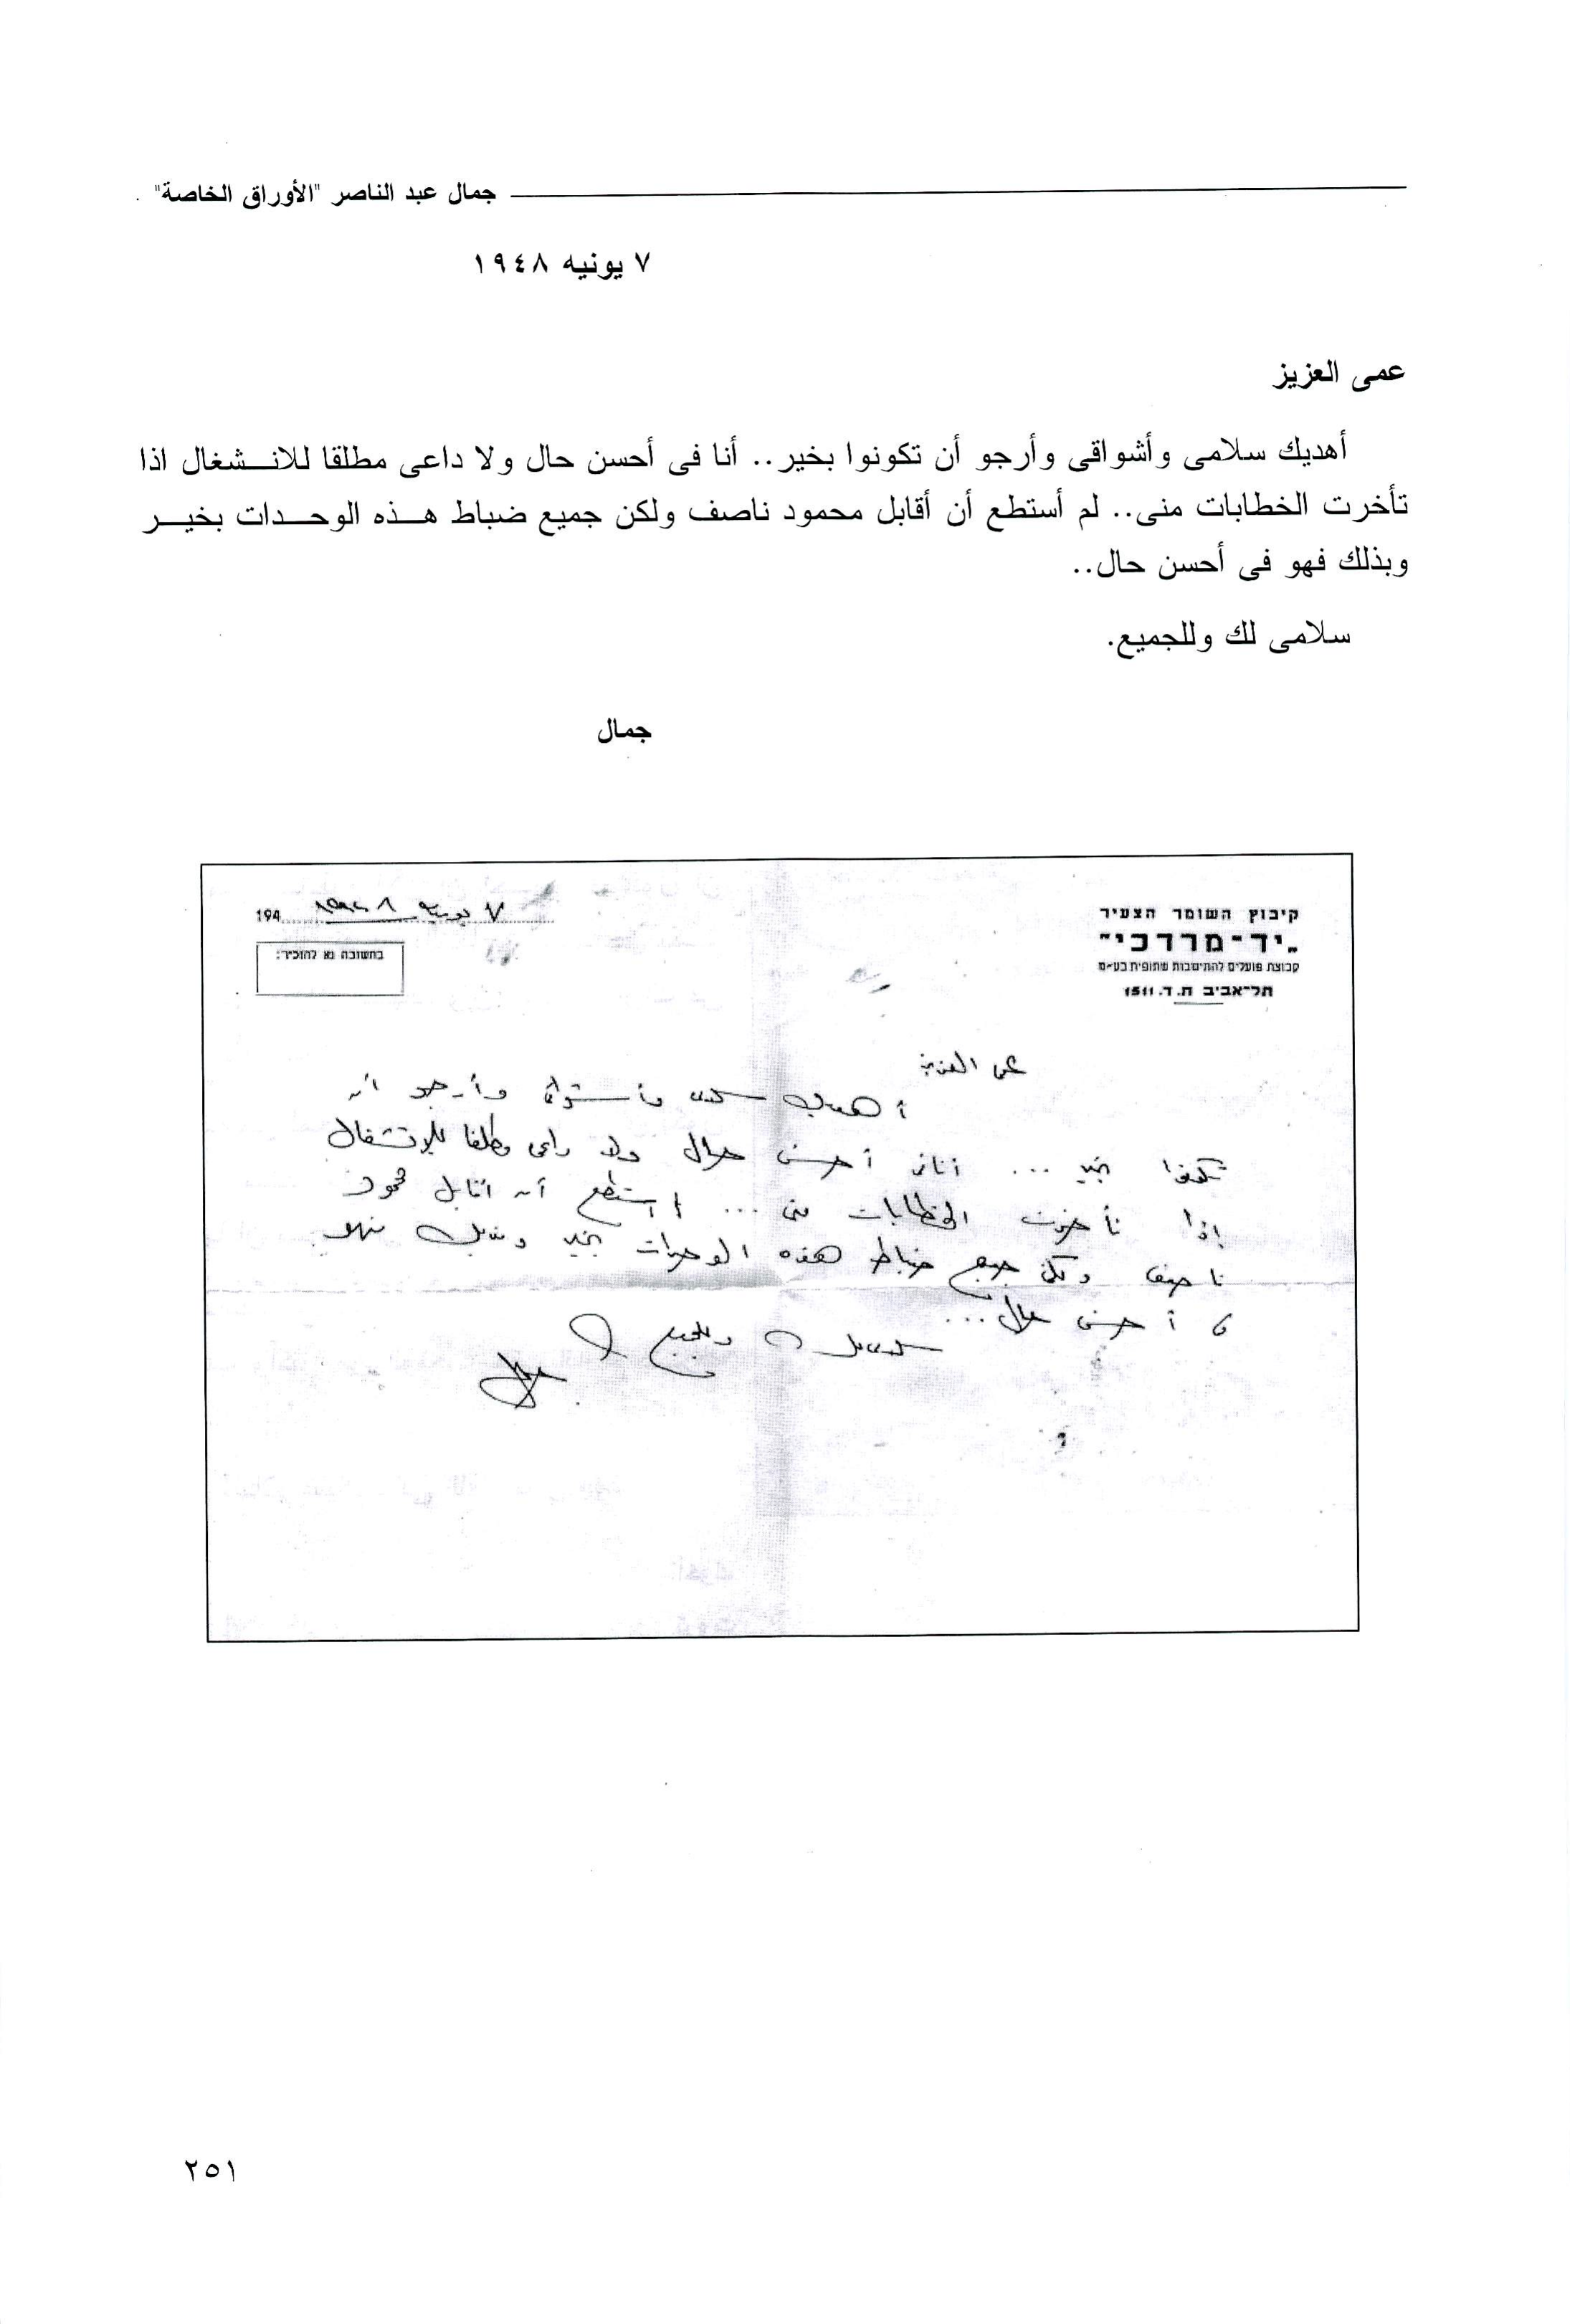 جمال عبد الناصر "الأوراق الخاصة"
٧ يونيه ١٩٤٨
عمى العزيز
أهديك سلامى وأشواقى وأرجو أن تكونوا بخير.. أنا فى أحسن حال ولا داعى مطلقا للانشغال اذا
تأخرت الخطابات منى.. لم أستطع أن أقابل محمود ناصف ولكن جميع ضباط هذه الوحدات بخير
وبذلك فهو فى أحسن حال..
سلامى لك وللجميع.
جمال
קיבוץ השומר הצעיר
"יד-מרדכי"
קבוצת פועלים להתישבות שתופית בע"מ
תל-אביב ת.ד. 1511
194 ٧ يونيه ١٩٤٨
בתשובה נא להזכיר:
عمى العزيز
أهديك سلامى وأشواقى وأرجو أن
تكونوا بخير ... أنا فى أحسن حال ولا داعى مطلقا للانشغال
إذا تأخرت الخطابات منى ... لم أستطع أن أقابل محمود
ناصف ولكن جميع ضباط هذه الوحدات بخير وبذلك فهو
فى أحسن حال ...
سلامى لك وللجميع
جمال
٢٥١